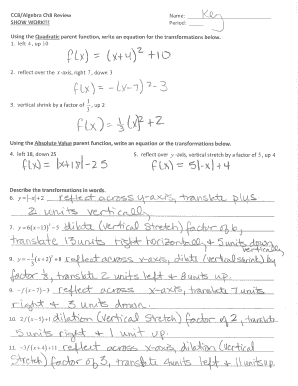 CCB/Algebra Ch8 Review Name: Key
SHOW WORK!!! Period:
Using the Quadratic parent function, write an equation for the transformations below.
1. left 4, up 10
f(x) = (x+4)² + 10
2. reflect over the x-axis, right 7, down 3
f(x) = -(x-7)² - 3
3. vertical shrink by a factor of 1/3, up 2
f(x) = 1/3(x)² + 2
Using the Absolute Value parent function, write an equation or the transformations below.
4. left 18, down 25 5. reflect over y-axis, vertical stretch by a factor of 5, up 4
f(x) = |x+18| - 25 f(x) = 5|-x| + 4
Describe the transformations in words.
6. y = |-x| + 2 reflect across y-axis, translate plus
2 units vertically
7. y = 6(x-13)² - 5 dilate (vertical stretch) factor of 6,
translate 13 units right horizontally, & 5 units down vertically
8 up.
factor 1/8, translate 2 units left & 8 units up.
9. -f(x-7)-3 reflect across x-axis, translate 7 units
right & 3 units down.
10. 2f(x-5)+1 dilation (vertical stretch) factor of 2, translate
5 units right & 1 unit up.
11. -3f(x+4)+11 reflect across x-axis, dilation (vertical
stretch) factor of 3, translate 4 units left & 11 units up.